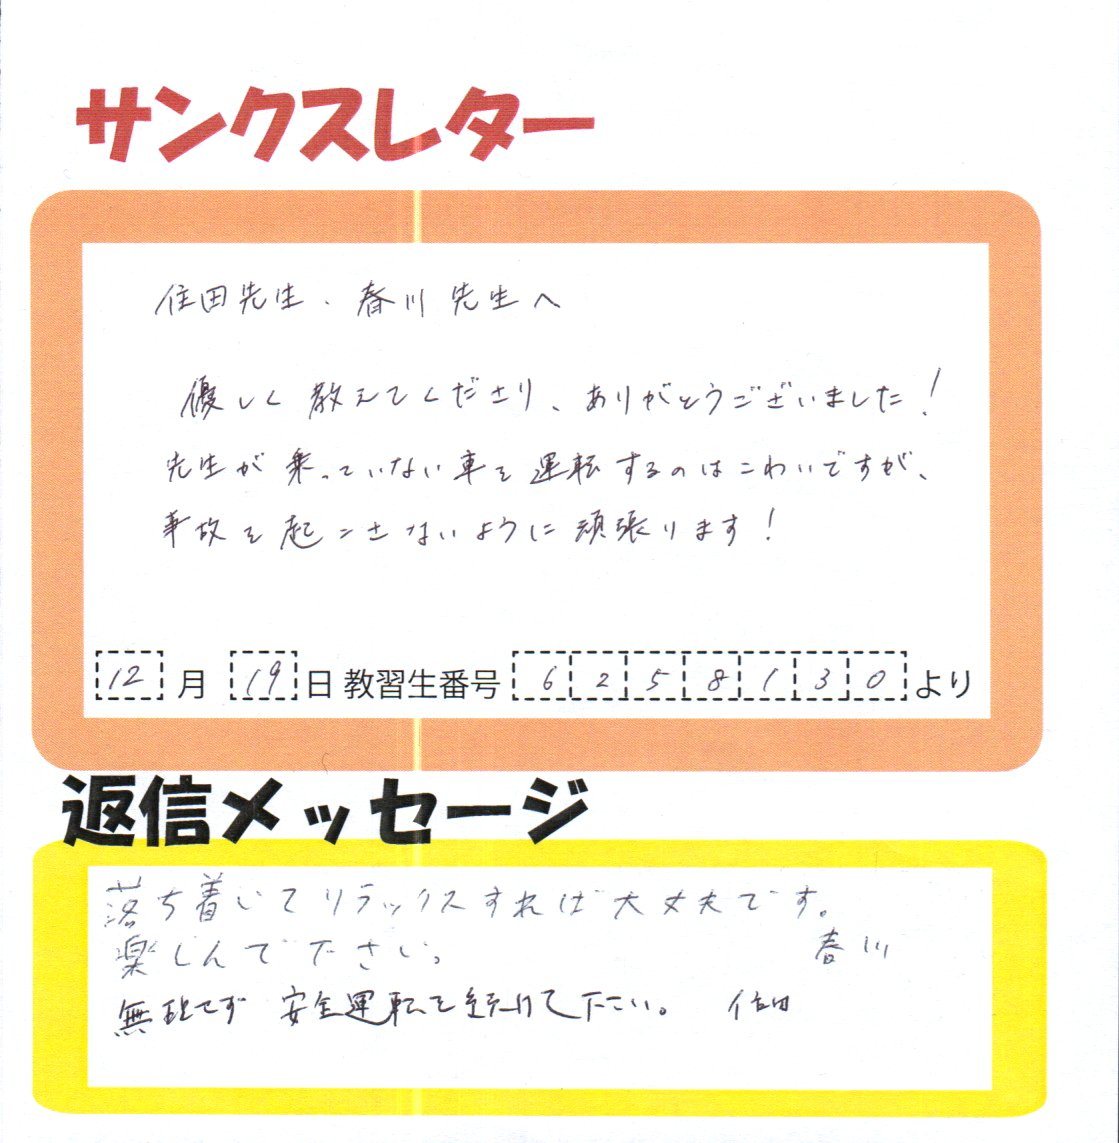 サンクスレター
住田先生、春川先生へ
優しく教えてくださり、ありがとうございました!
先生が乗っていない車を運転するのはこわいですが、
事故を起こさないように頑張ります!
12月19日教習生番号6258130より
返信メッセージ
落ち着いてリラックスすれば大丈夫です。
楽しんで下さい。 春川
無理せず 安全運転を続けて下さい。 住田